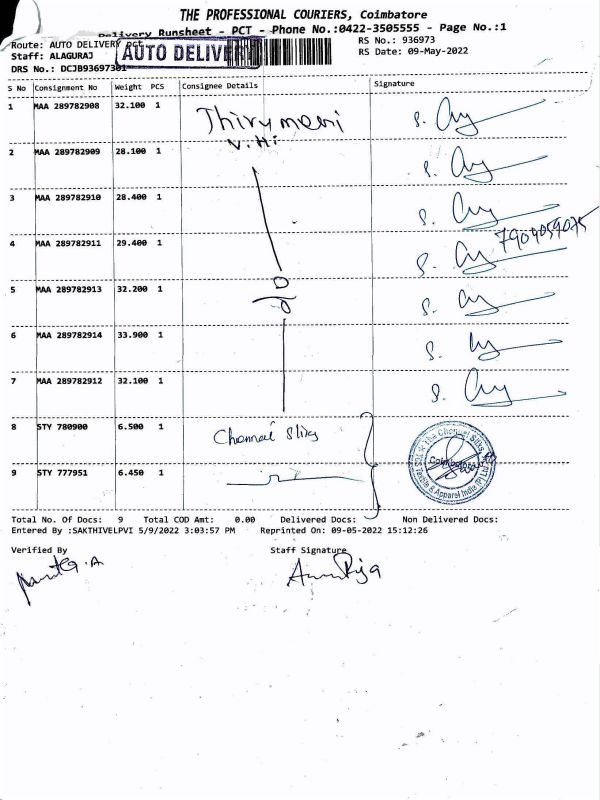 THE PROFESSIONAL COURIERS, Coimbatore
Delivery Runsheet - PCT - Phone No.:0422-3505555 - Page No.:1
Route: AUTO DELIVERY PCT
AUTO DELIVERY
RS No.: 936973
Staff: ALAGURAJ
RS Date: 09-May-2022
DRS No.: DCJB936973
S No Consignment No Weight PCS Consignee Details Signature
1 MAA 289782908 32.100 1 Thirumani
N.Mi
2 MAA 289782909 28.100 1
3 MAA 289782910 28.400 1
7904059075
4 MAA 289782911 29.400 1
5 MAA 289782913 32.200 1
6 MAA 289782914 33.900 1
7 MAA 289782912 32.100 1
8 STY 780900 6.500 1 Chennai Silks
The Chennai Silks
Coimbatore
Textile & Apparel India (P) Ltd
9 STY 777951 6.450 1
Total No. Of Docs: 9 Total COD Amt: 0.00 Delivered Docs: Non Delivered Docs:
Entered By :SAKTHIVELPVI 5/9/2022 3:03:57 PM Reprinted On: 09-05-2022 15:12:26
Verified By Staff Signature